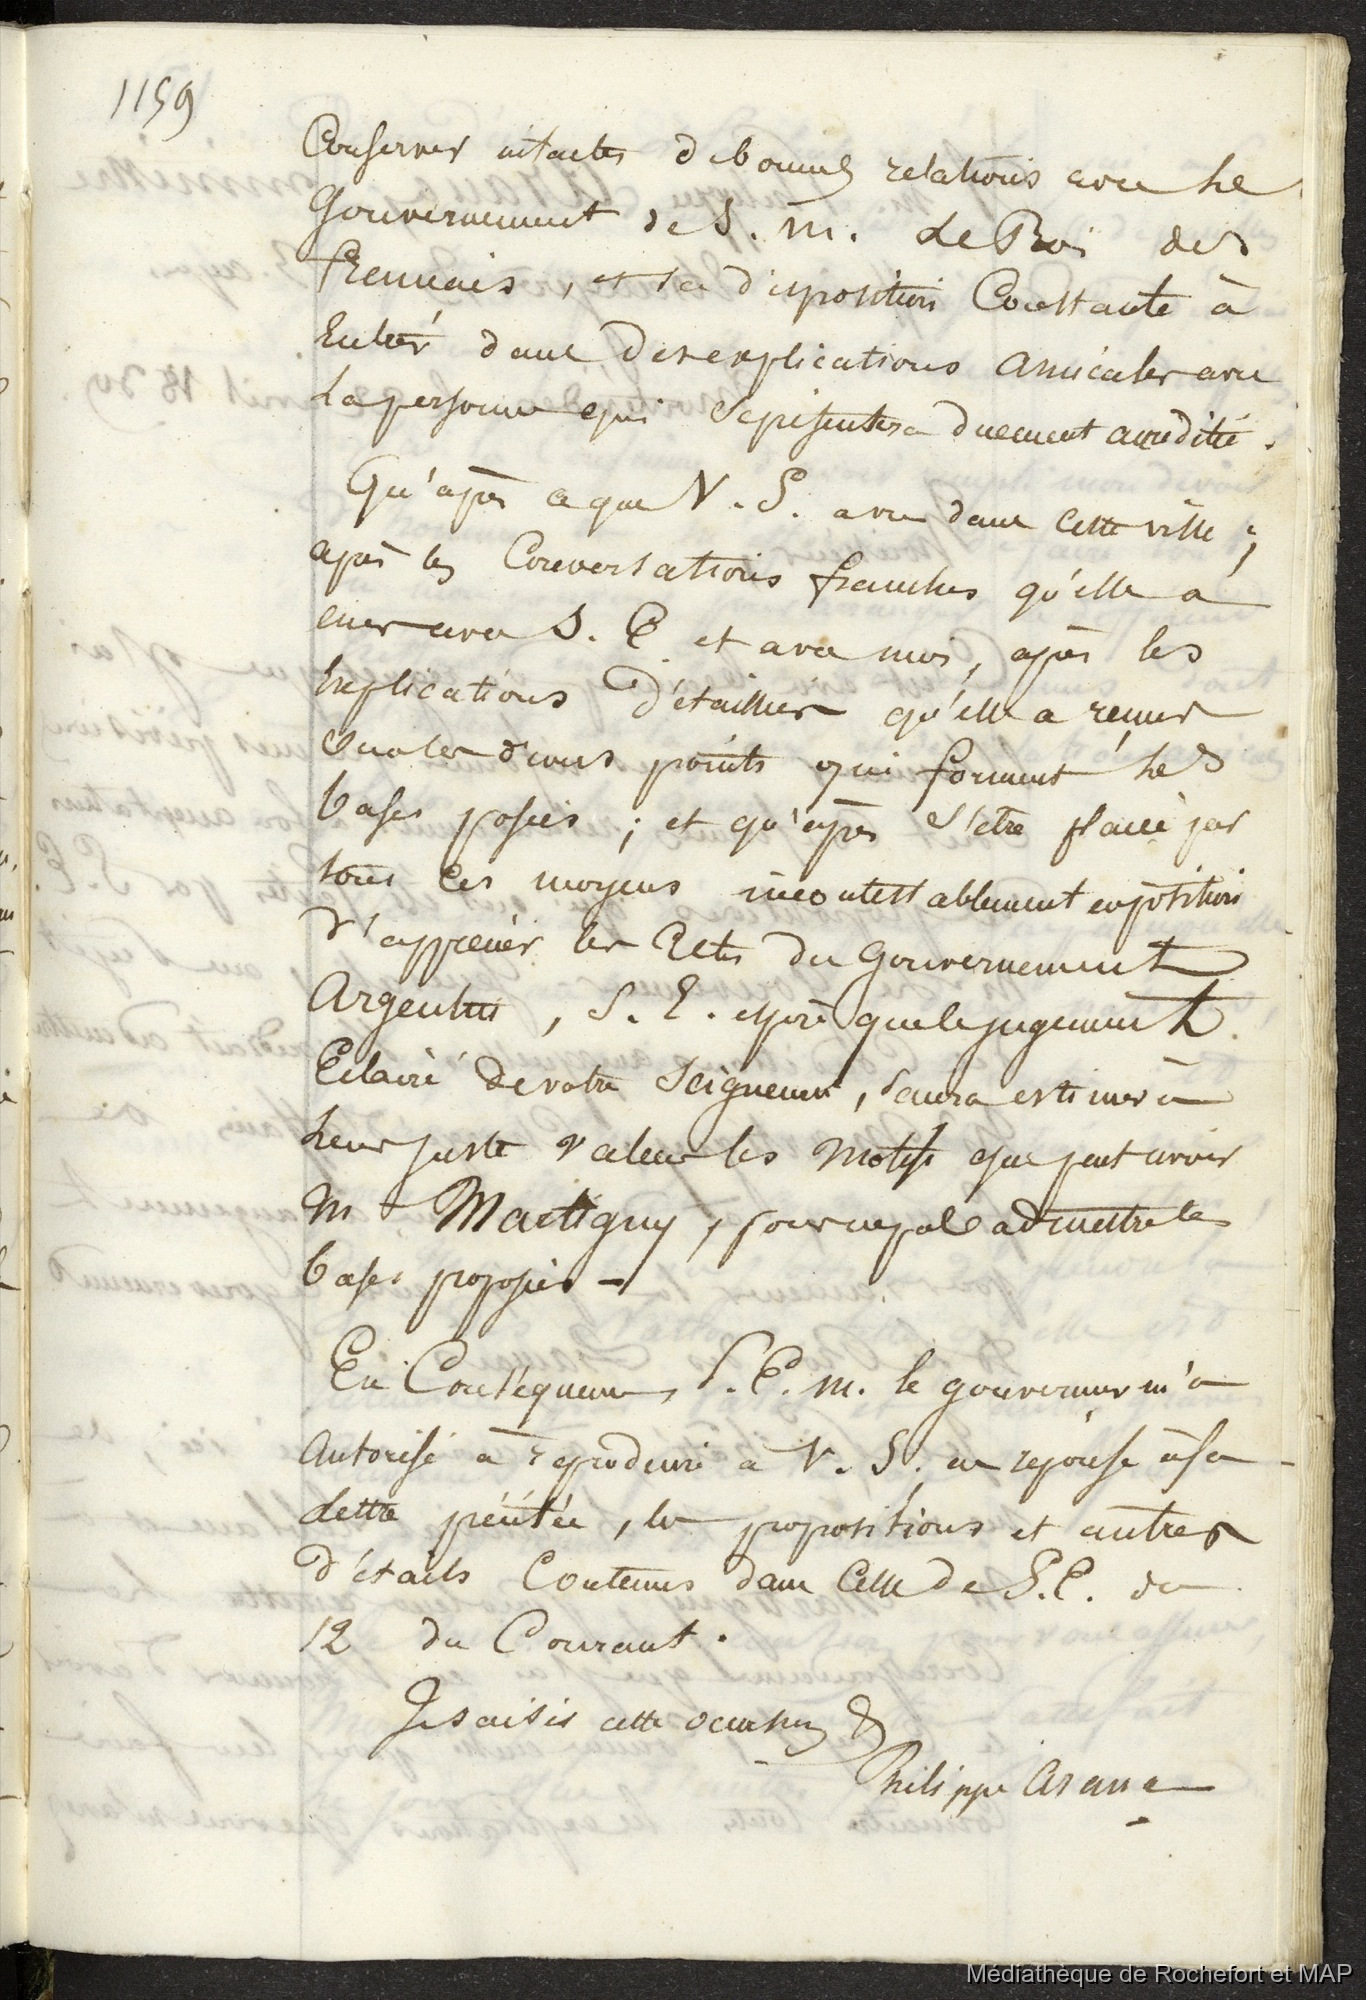 1159
Conserver intactes de bonnes relations avec le
Gouvernement de S. M. le Roi des
français, et sa disposition Constante à
Entrer dans des explications amicales avec
la personne qui se présentera duement accrédité.
Qu'après ce que V. S. a vu dans cette ville ;
après les Conversations franches qu'elle a
eues avec S. E. et avec moi, après les
Explications détaillées qu'elle a reçues
sur les divers points qui forment les
bases posées ; et qu'après s'être placé par
tous les moyens incontestablement en position
d'apprécier les Actes du Gouvernement
Argentin, S. E. espère que le jugement
Eclairé de votre Seigneurie, saura estimer à
leur juste valeur les motifs que peut avoir
M Martigny, pour ne pas admettre les
bases proposées –
En Conséquence, S. E. M. le gouverneur m'a
Autorisé à reproduire à V. S. en réponse à sa
lettre précitée, les propositions et autres
détails Contenus dans Celle de S. E. du
12 du Courant.
Je saisis cette occasion &
Philippe Arana
Médiathèque de Rochefort et MAP